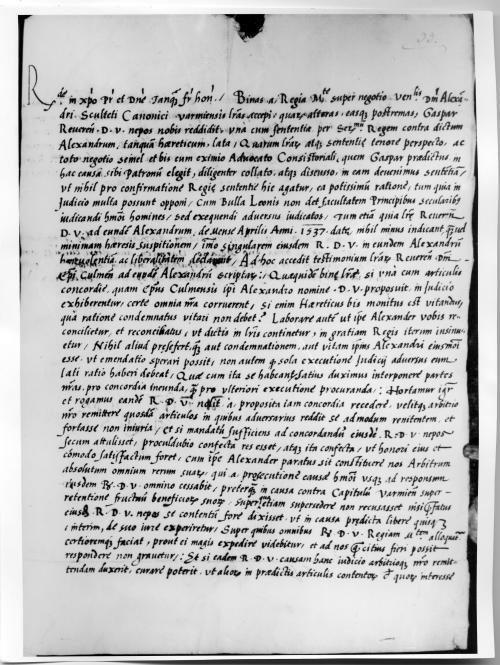 R.de in xpo Pr et Dne Tanq fr hon. / Binas a Regia M.te super negotio ven.lis Dni Alexan
dri Sculteti Canonici varmiensis lras accepi, quarz alteras, easq postremas, Gaspar
Reveren. D. V. nepos nobis reddidit, vna cum sententia per Ser.mu Regem contra dictum
Alexandrum, tanquã haereticum, lata, Quarum lrarz, atq sententie tenore perspecto, ac
toto negotio semel et bis cum eximio Advocato Consistoriali, quem Gaspar praedictus in
hac causa sibi Patronũ elegit, diligenter collato, atq discusso, in eam devenimus sentẽtiã,
vt nihil pro confirmatione Regie sententie hic agatur, ea potissimũ ratione, tum quia in
judicio multa possunt opponi, Cum Bulla Leonis non det facultatem Principibus secularibus
iudicandi hmõi homines, sed exequendi adversus iudicatos, Tum etiã quia lre Reverẽn
D. V. ad eundẽ Alexandrum, de Mense Aprilis Anni. 1537. date, nihil minus indicant, quel
minimam haeresis suspitionem, imo singularem eiusdem R. D. V. in eundem Alexandrũ
ac liberalitatem Ad hoc accedit testimonium lrarz Reveren Dni
Epi Culmen ad eundẽ Alexandrũ scriptarz: Quaequidẽ bine lrae, si vnà cum articulis
concordie, quam Epus Culmensis ipi Alexandro nomine. D. V. proposuit, in Judicio
exhiberentur, certe omnia corruerent, Si enim Haereticus bis monitus est vitandus,
quà ratione condemnatus vitari non debet? Laborare autẽ ut ipe Alexander vobis re-
concilietur, et reconciliatus, vt dictis in lris continetur, in gratiam Regis iterum insinu-
etur, Nihil aliud praefert, aut condemnationem, aut vitam ipius Alexandri eiusmõi
esse, vt emendatio sperari possit, non autem q sola executione Judicij adversus eum
lati ratio haberi debeat, Quae cum ita se habeant, satius duximus interponere partes
nras, pro concordia ineunda, pro vlteriori executione procuranda: Hortamur igr
et rogamus eandẽ R. D. V: a proposita iam concordia recedere, velitq arbitrio
nro remittere quosdã articulos in quibus adversarius reddit se admodum renitentem, et
fortasse non iniuria, et si mandatũ sufficiens ad concordandũ eiusdẽ. R. D. V. nepos
secum attulisset, proculdubio confecta res esset, atq ita confecta, vt honori eius et
cõmodo satisfactum foret, Cum ipe Alexander paratus sit constituere nos Arbitrum
absolutum omnium rerum suarz, qui a prosecutione causae hmõi vsq ad responsum
eiusdem D. V. omnino cessabit, in causa contra Capitulũ Varmien super
retentione fructuũ beneficiorz suorz, supersedere non recusasset
eiusdẽ R. D. V. nepos se contentũ fore dixisset, vt in causa praedicta liberẽ
interim, de suo iure experiretur, Super quibus omnibus D. V. Regiam alloquũ
certioremq faciat, prout ei magis expedire videbitur, et ad nos citius fieri possit
respondere non gravetur, Et si eadem R. D. V. causam hanc iudicio arbitrioq nro remit-
tendam duxerit, curarẽ poterit, vt aliorz in praedictis articulis contentorz quorz interesse